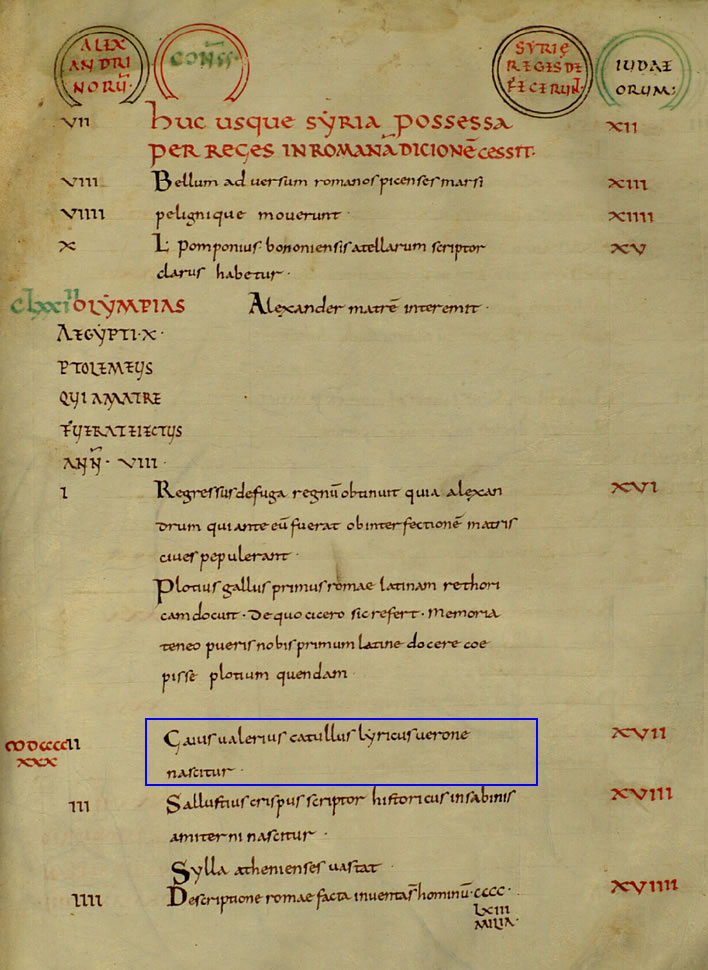 ALEX
ANDRI
NORŪ
CONS̄S
SYRIĘ
REGIS DE
FECERUNT
IUDAE
ORUM:
VII huc usque syria possessa XII
PER REGES IN ROMANĀ DICIONĒ CESSIT·
VIII Bellum adversum romanos picenses marsi XIII
VIIII pelignique moverunt · XIIII
X L pomponius bononiensis atellarum scriptor XV
clarus habetur ·
OLYMPIAS Alexander matrē interemit ·
AEGYPTI · X ·
PTOLEMEUS
QUI A MATRE
FUERAT EIECTUS
ANN̄ · VIII ·
I Regressus de fuga regnū obtinuit quia alexan XVI
drum qui ante eū fuerat ob interfectionē matris
cives pepulerant ·
Plotius gallus primus romae latinam rethori
cam docuit · De quo cicero sic refert · Memoria
teneo pueris nobis primum latine docere coe
pisse plotium quendam ·
MDCCCC II Gaius valerius catullus lyricus verone XVII
XXX nascitur ·
III Sallustius crispus scriptor historicus in sabinis XVIII
amiterni nascitur ·
Sylla athenienses vastat ·
IIII Descriptione romae facta inventa s̄ hominū · cccc · XVIIII
LXIII
MILIA ·